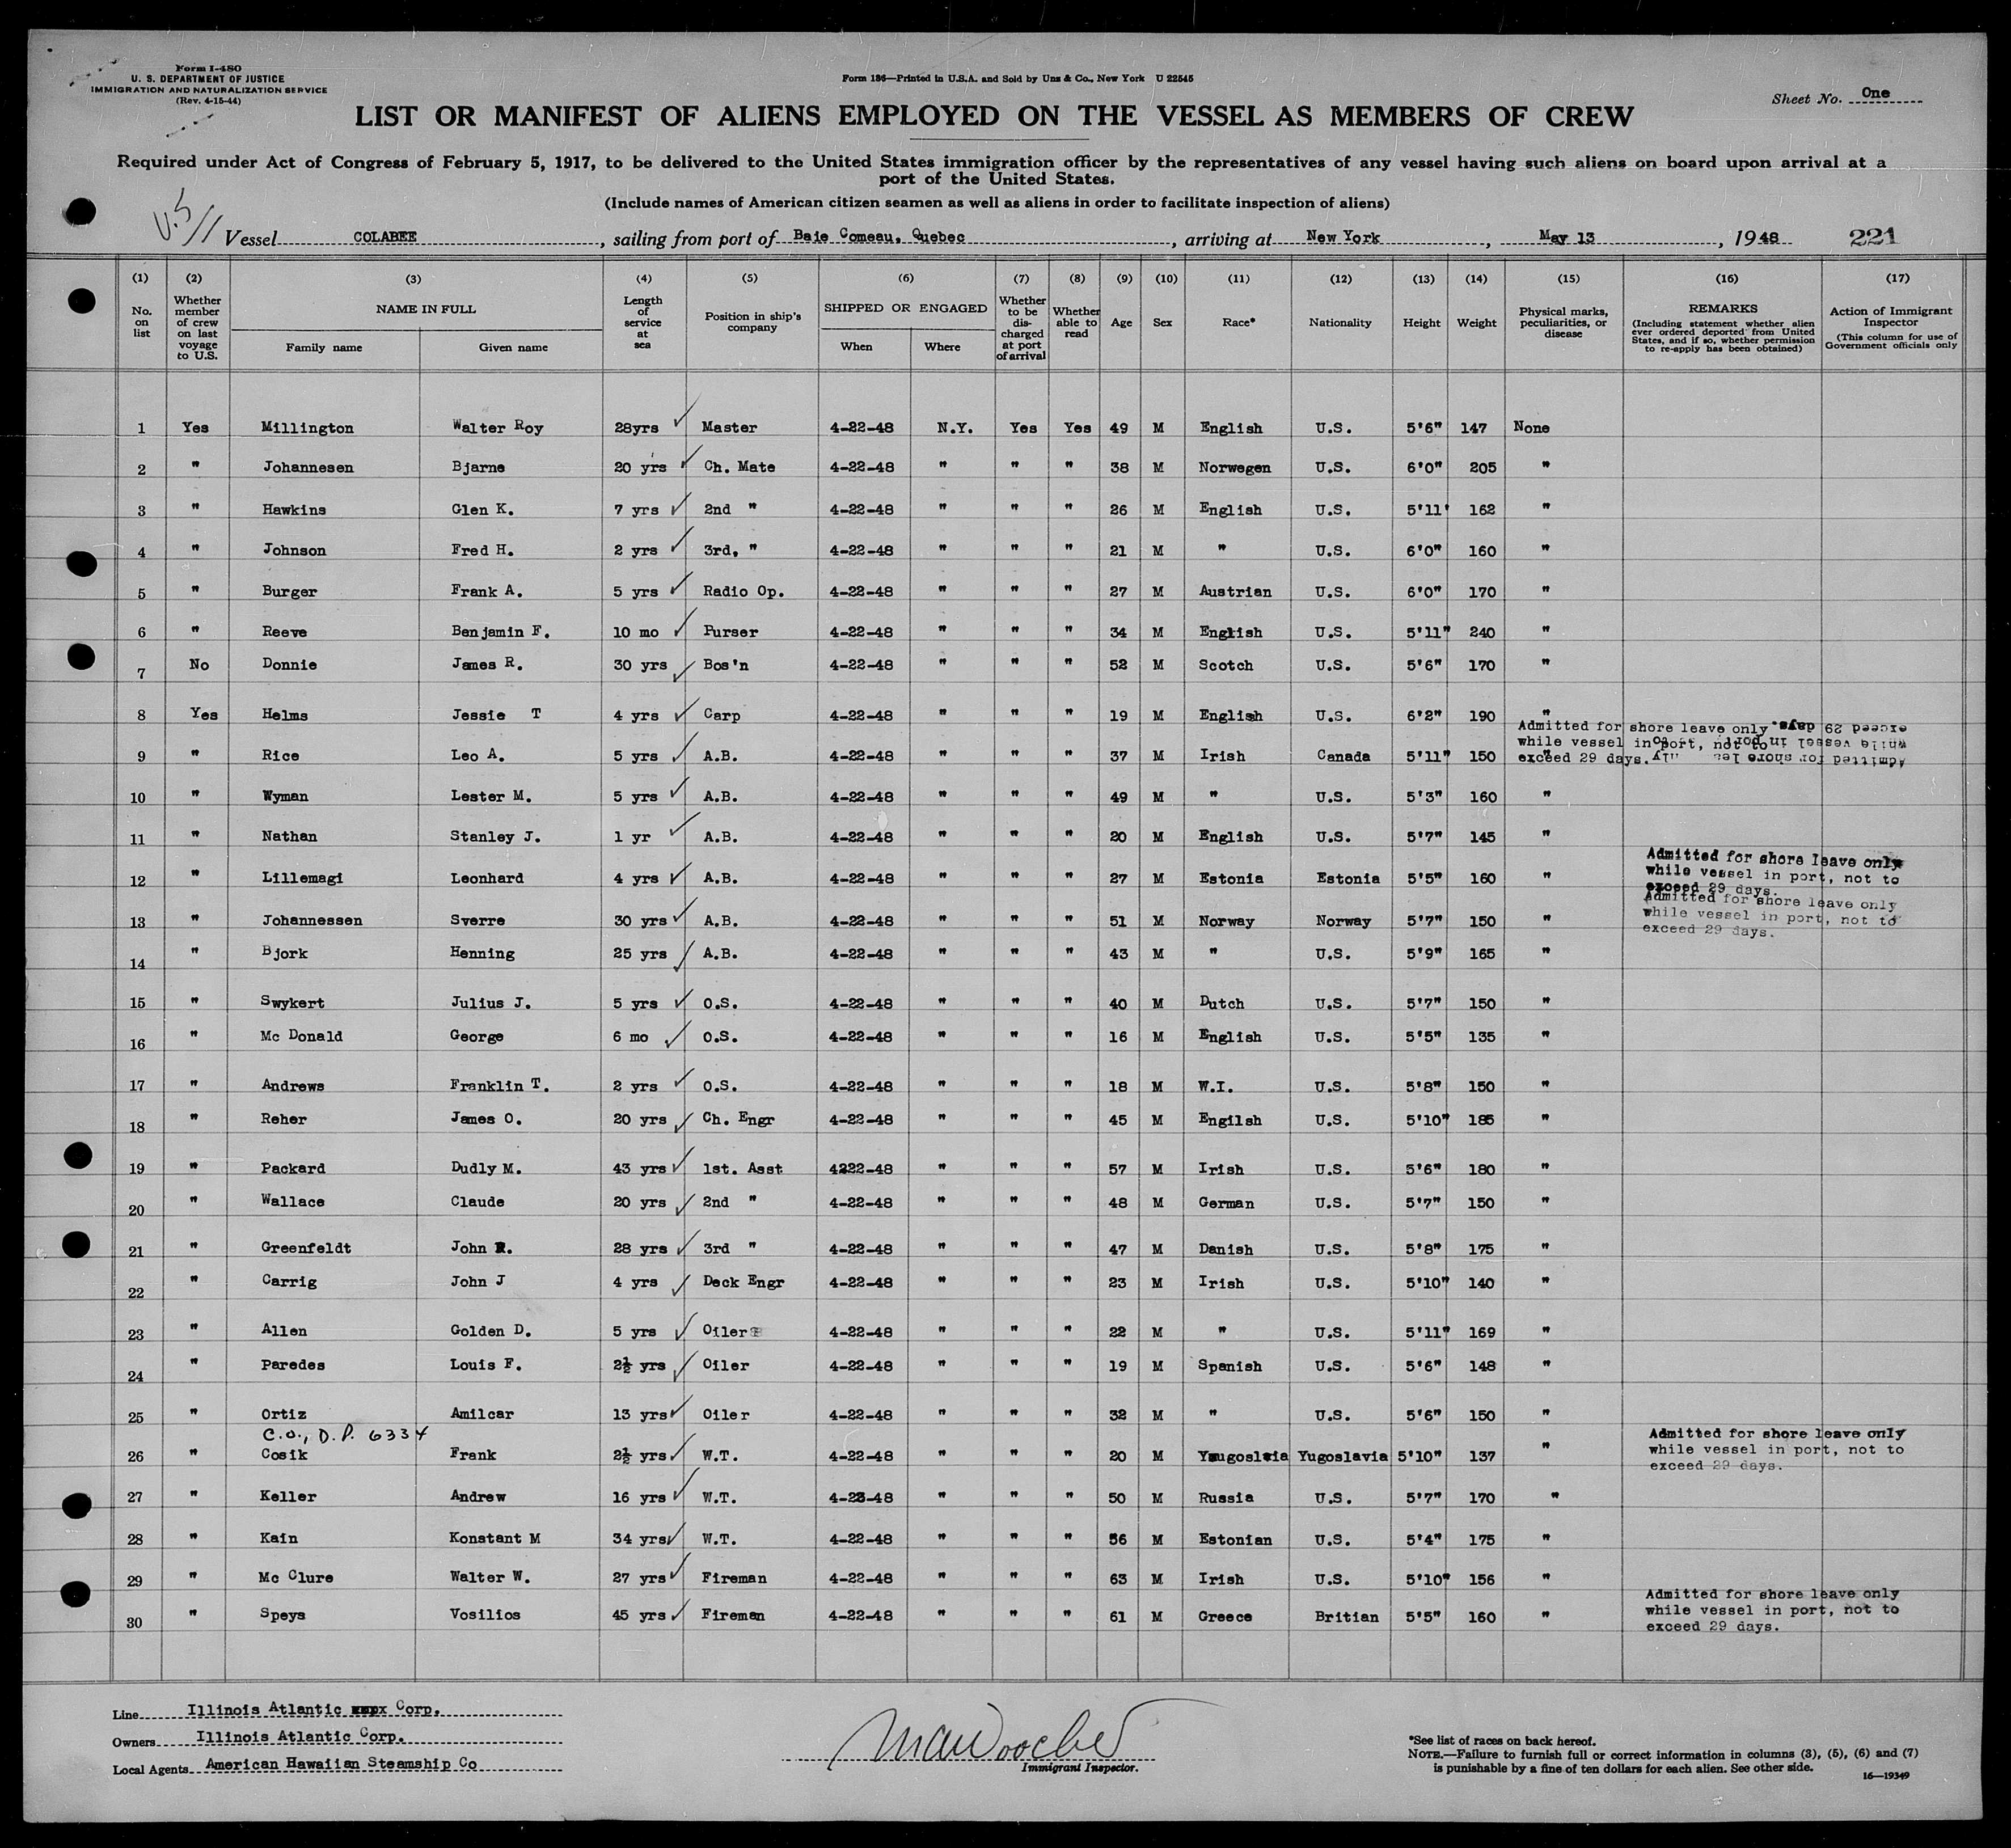 Form I-480
U. S. DEPARTMENT OF JUSTICE
IMMIGRATION AND NATURALIZATION SERVICE
(Rev. 4-15-44)
Form 186—Printed in U.S.A. and Sold by Unz & Co., New York U 22545
Sheet No. One
LIST OR MANIFEST OF ALIENS EMPLOYED ON THE VESSEL AS MEMBERS OF CREW
Required under Act of Congress of February 5, 1917, to be delivered to the United States immigration officer by the representatives of any vessel having such aliens on board upon arrival at a
port of the United States.
(Include names of American citizen seamen as well as aliens in order to facilitate inspection of aliens)
U.S//
Vessel COLABEE, sailing from port of Baie Comeau, Quebec, arriving at New York, May 13, 1948 221
(1) No. on list
(2) Whether member of crew on last voyage to U.S.
(3) NAME IN FULL Family name Given name
(4) Length of service at sea
(5) Position in ship's company
(6) SHIPPED OR ENGAGED When Where
(7) Whether to be discharged at port of arrival
(8) Whether able to read
(9) Age
(10) Sex
(11) Race*
(12) Nationality
(13) Height
(14) Weight
(15) Physical marks, peculiarities, or disease
(16) REMARKS (Including statement whether alien ever ordered deported from United States, and if so, whether permission to re-apply has been obtained)
(17) Action of Immigrant Inspector (This column for use of Government officials only
1 Yes Millington Walter Roy 28yrs Master 4-22-48 N.Y. Yes Yes 49 M English U.S. 5'6" 147 None
2 " Johannesen Bjarne 20 yrs Ch. Mate 4-22-48 " " " 38 M Norwegen U.S. 6'0" 205 "
3 " Hawkins Glen K. 7 yrs 2nd " 4-22-48 " " " 26 M English U.S. 5'11' 162 "
4 " Johnson Fred H. 2 yrs 3rd, " 4-22-48 " " " 21 M " U.S. 6'0" 160 "
5 " Burger Frank A. 5 yrs Radio Op. 4-22-48 " " " 27 M Austrian U.S. 6'0" 170 "
6 " Reeve Benjamin F. 10 mo Purser 4-22-48 " " " 34 M English U.S. 5'11" 240 "
7 No Donnie James R. 30 yrs Bos'n 4-22-48 " " " 52 M Scotch U.S. 5'6" 170 "
8 Yes Helms Jessie T 4 yrs Carp 4-22-48 " " " 19 M English U.S. 6'2" 190 "
9 " Rice Leo A. 5 yrs A.B. 4-22-48 " " " 37 M Irish Canada 5'11" 150 "
Admitted for shore leave only
while vessel in port, not to
exceed 29 days.
Admitted for shore
while vessel in port
exceed 29 days.
10 " Wyman Lester M. 5 yrs A.B. 4-22-48 " " " 49 M " U.S. 5'3" 160 "
11 " Nathan Stanley J. 1 yr A.B. 4-22-48 " " " 20 M English U.S. 5'7" 145 "
12 " Lillemagi Leonhard 4 yrs A.B. 4-22-48 " " " 27 M Estonia Estonia 5'5" 160 "
Admitted for shore leave only
while vessel in port, not to
exceed 29 days.
13 " Johannessen Sverre 30 yrs A.B. 4-22-48 " " " 51 M Norway Norway 5'7" 150 "
Admitted for shore leave only
while vessel in port, not to
exceed 29 days.
14 " Bjork Henning 25 yrs A.B. 4-22-48 " " " 43 M " U.S. 5'9" 165 "
15 " Swykert Julius J. 5 yrs O.S. 4-22-48 " " " 40 M Dutch U.S. 5'7" 150 "
16 " Mc Donald George 6 mo O.S. 4-22-48 " " " 16 M English U.S. 5'5" 135 "
17 " Andrews Franklin T. 2 yrs O.S. 4-22-48 " " " 18 M W.I. U.S. 5'8" 150 "
18 " Reher James O. 20 yrs Ch. Engr 4-22-48 " " " 45 M Engilsh U.S. 5'10" 185 "
19 " Packard Dudly M. 43 yrs 1st. Asst 4222-48 " " " 57 M Irish U.S. 5'6" 180 "
20 " Wallace Claude 20 yrs 2nd " 4-22-48 " " " 48 M German U.S. 5'7" 150 "
21 " Greenfeldt John R. 28 yrs 3rd " 4-22-48 " " " 47 M Danish U.S. 5'8" 175 "
22 " Carrig John J 4 yrs Deck Engr 4-22-48 " " " 23 M Irish U.S. 5'10" 140 "
23 " Allen Golden D. 5 yrs Oiler 4-22-48 " " " 22 M " U.S. 5'11" 169 "
24 " Paredes Louis F. 2½ yrs Oiler 4-22-48 " " " 19 M Spanish U.S. 5'6" 148 "
25 " Ortiz Amilcar 13 yrs Oiler 4-22-48 " " " 32 M " U.S. 5'6" 150 "
C.O., D.P. 6334
26 " Cosik Frank 2½ yrs W.T. 4-22-48 " " " 20 M Yaugoslvia Yugoslavia 5'10" 137 "
Admitted for shore leave only
while vessel in port, not to
exceed 29 days.
27 " Keller Andrew 16 yrs W.T. 4-23-48 " " " 50 M Russia U.S. 5'7" 170 "
28 " Kain Konstant M 34 yrs W.T. 4-22-48 " " " 56 M Estonian U.S. 5'4" 175 "
29 " Mc Clure Walter W. 27 yrs Fireman 4-22-48 " " " 63 M Irish U.S. 5'10" 156 "
30 " Speys Vosilios 45 yrs Fireman 4-22-48 " " " 61 M Greece Britian 5'5" 160 "
Admitted for shore leave only
while vessel in port, not to
exceed 29 days.
Line Illinois Atlantic Corp.
Owners Illinois Atlantic Corp.
Local Agents American Hawaiian Steamship Co
Immigrant Inspector.
*See list of races on back hereof.
NOTE.—Failure to furnish full or correct information in columns (3), (5), (6) and (7)
is punishable by a fine of ten dollars for each alien. See other side.
16—19349